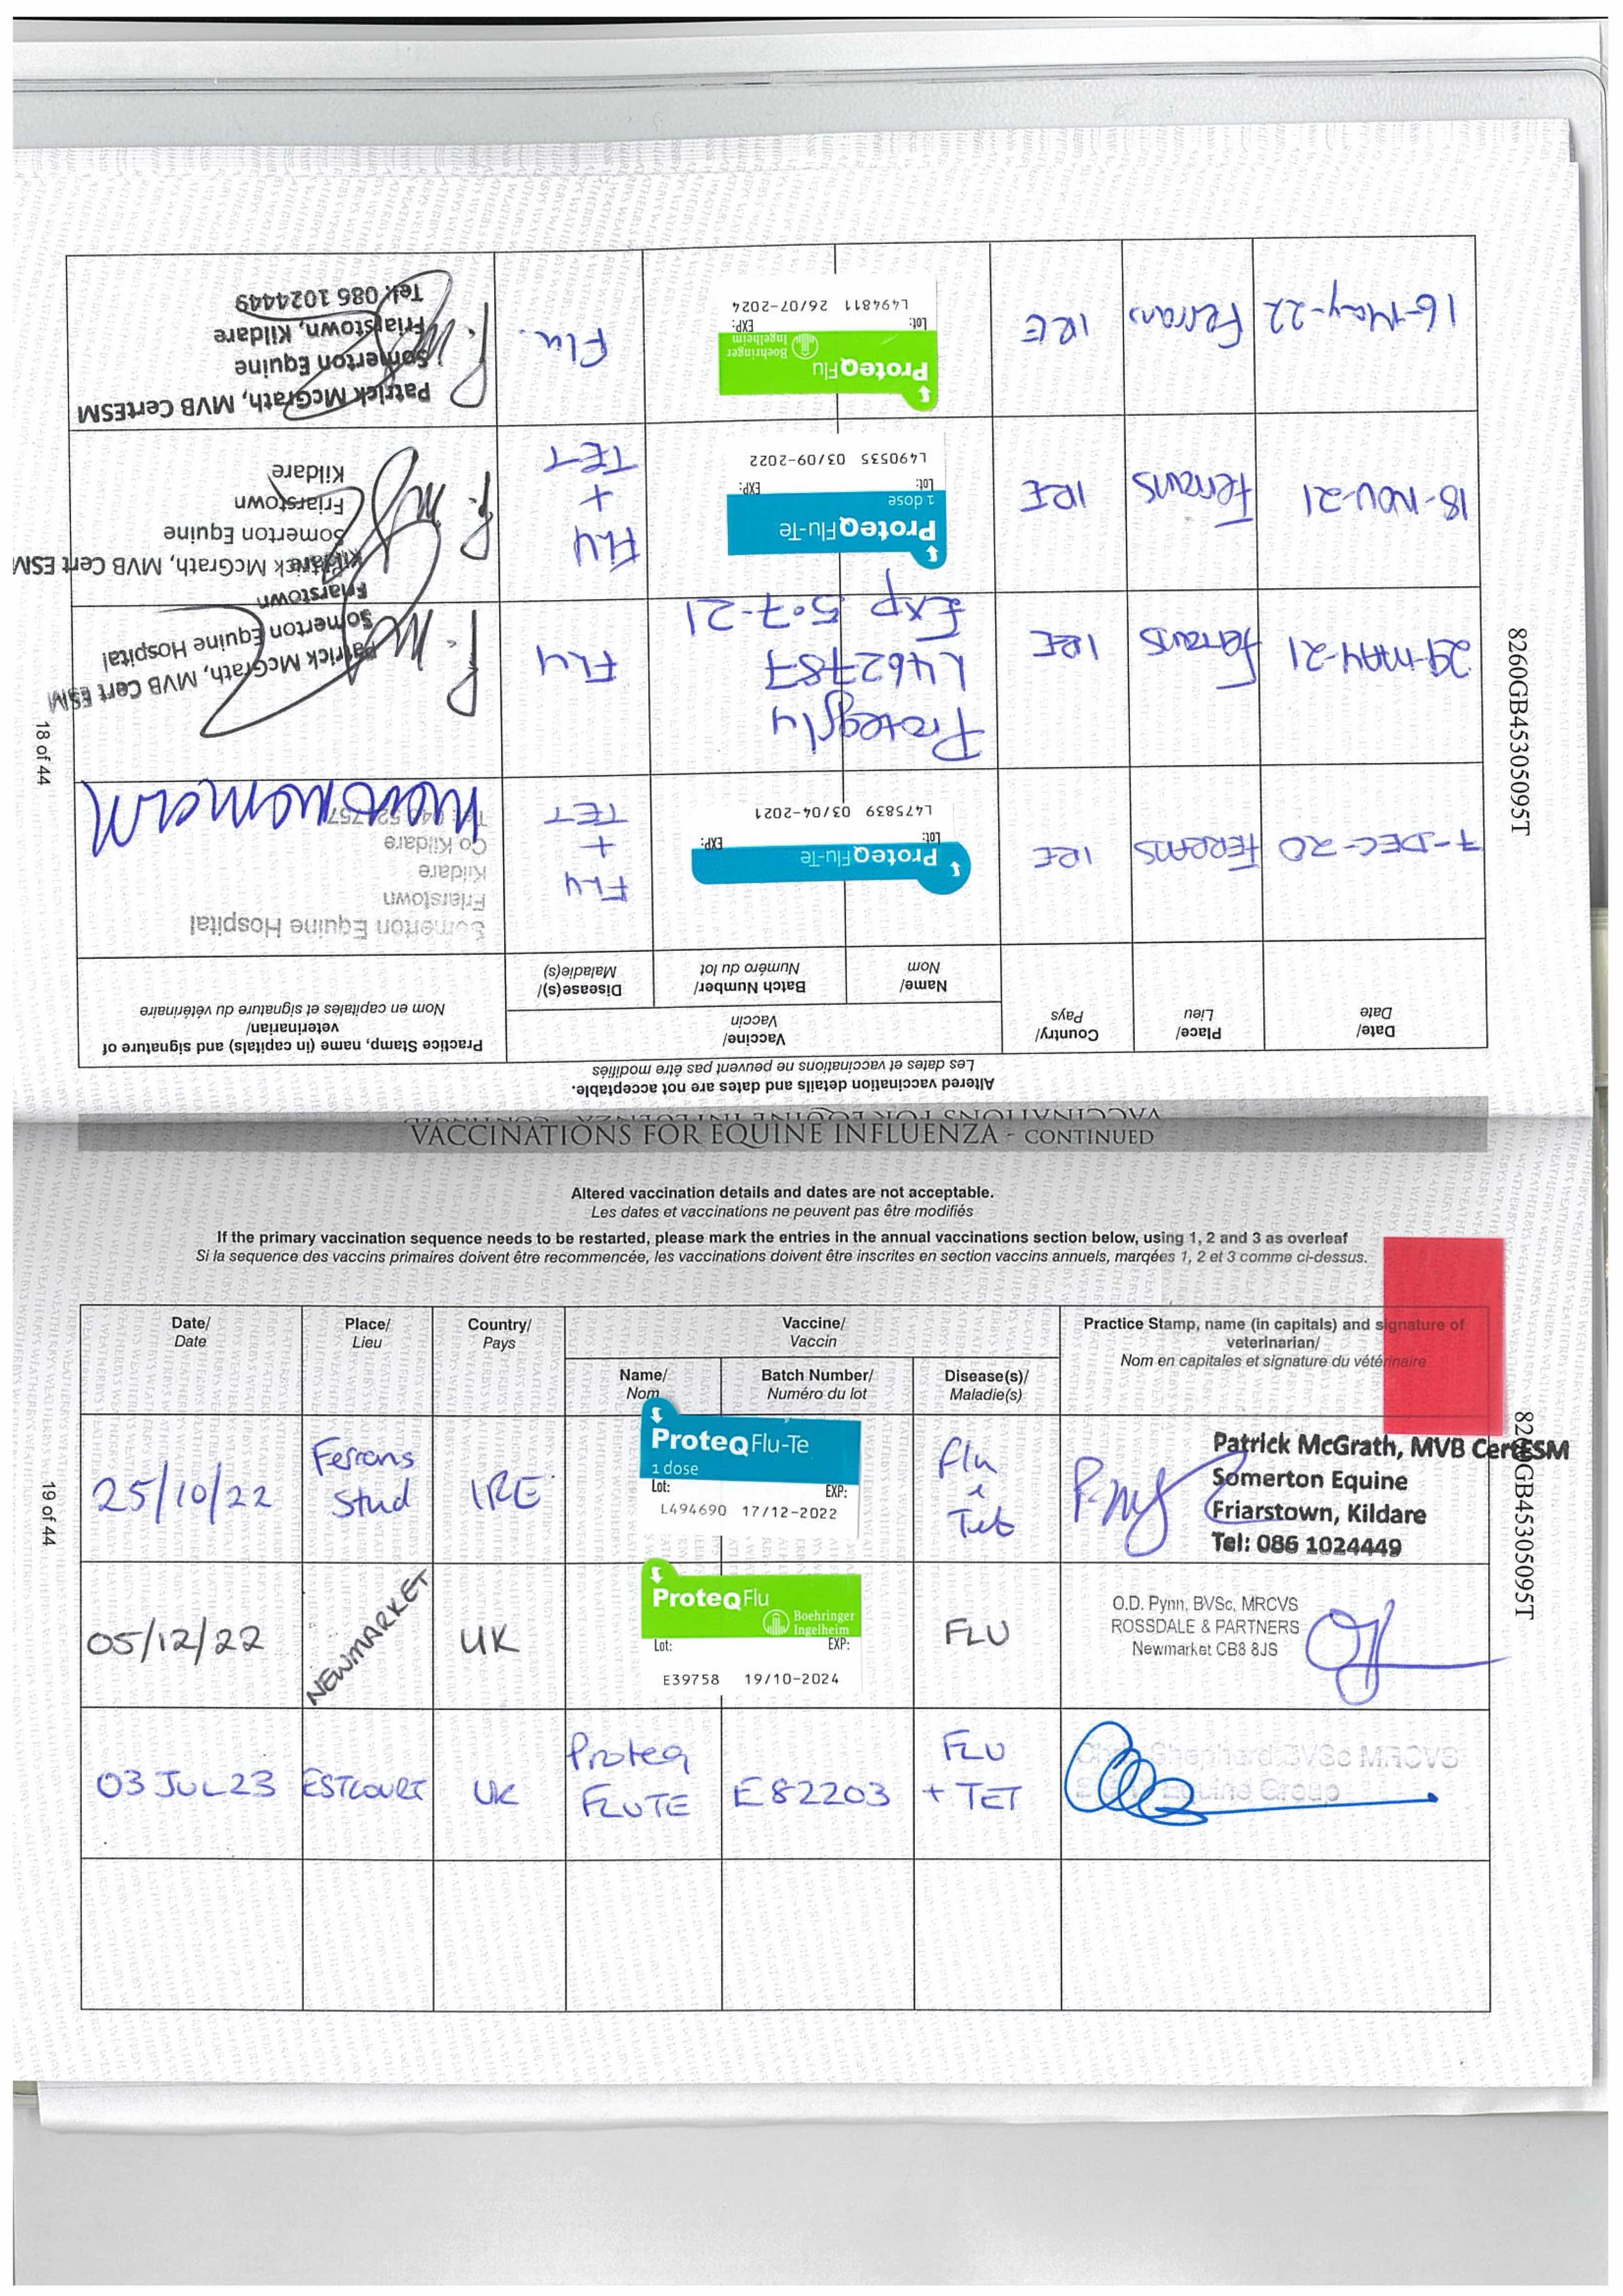 VACCINATIONS FOR EQUINE INFLUENZA - CONTINUED
Altered vaccination details and dates are not acceptable.
Les dates et vaccinations ne peuvent pas être modifiés
Date/
Date
Place/
Lieu
Country/
Pays
Vaccine/
Vaccin
Name/
Nom
Batch Number/
Numéro du lot
Disease(s)/
Maladie(s)
Practice Stamp, name (in capitals) and signature of
veterinarian/
Nom en capitales et signature du vétérinaire
7-DEC-20
FERRANS
IRE
ProteqFlu-Te
Lot: EXP:
L475839 03/04-2021
FLU
+
TET
Somerton Equine Hospital
Friarstown
Kildare
Co Kildare
29-MAY-21
Ferrans
IRE
Proteqflu
L462787
Exp 5.07-21
FLU
Patrick McGrath, MVB Cert ESM
Somerton Equine Hospital
Friarstown
Kildare
18-NOV-21
Ferrans
IRE
ProteqFlu-Te
1 dose
Lot: EXP:
L490535 03/09-2022
FLU
+
TET
Patrick McGrath, MVB Cert ESM
Somerton Equine
Friarstown
Kildare
16-May-22
Ferrans
IRE
ProteqFlu
Boehringer
Ingelheim
Lot: EXP:
L494811 26/07-2024
Flu.
Patrick McGrath, MVB CertESM
Somerton Equine
Friarstown, Kildare
Tel: 086 1024449
18 of 44
8260GB45305095T
VACCINATIONS FOR EQUINE INFLUENZA - CONTINUED
Altered vaccination details and dates are not acceptable.
Les dates et vaccinations ne peuvent pas être modifiés
If the primary vaccination sequence needs to be restarted, please mark the entries in the annual vaccinations section below, using 1, 2 and 3 as overleaf
Si la sequence des vaccins primaires doivent être recommencée, les vaccinations doivent être inscrites en section vaccins annuels, marqées 1, 2 et 3 comme ci-dessus.
Date/
Date
Place/
Lieu
Country/
Pays
Vaccine/
Vaccin
Name/
Nom
Batch Number/
Numéro du lot
Disease(s)/
Maladie(s)
Practice Stamp, name (in capitals) and signature of
veterinarian/
Nom en capitales et signature du vétérinaire
25/10/22
Ferrans
Stud
IRE
ProteqFlu-Te
1 dose
Lot: EXP:
L494690 17/12-2022
Flu
Tet
Patrick McGrath, MVB CertESM
Somerton Equine
Friarstown, Kildare
Tel: 086 1024449
05/12/22
NEWMARKET
UK
ProteqFlu
Boehringer
Ingelheim
Lot: EXP:
E39758 19/10-2024
FLU
O.D. Pynn, BVSc, MRCVS
ROSSDALE & PARTNERS
Newmarket CB8 8JS
03 JUL 23
ESTCOURT
UK
Proteq
FLUTE
E82203
FLU
+ TET
Shephard BVSc MRCVS
Equine Group
19 of 44